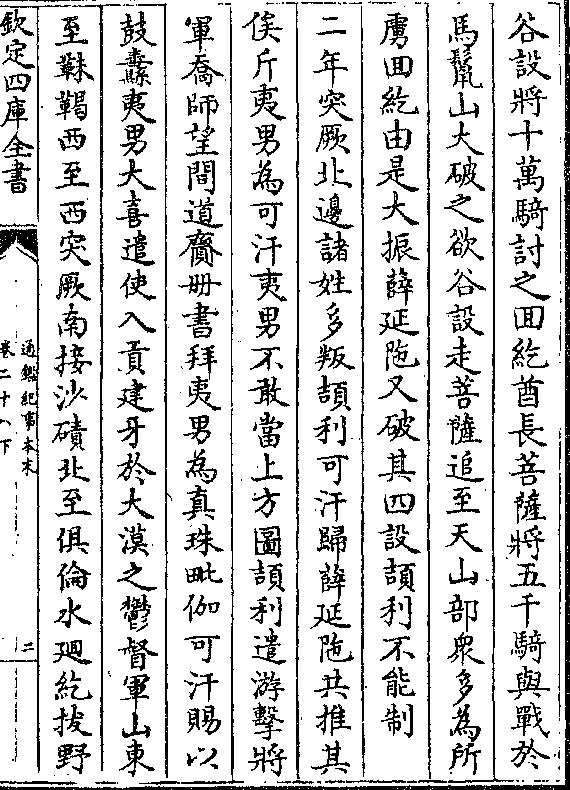 谷設將十萬騎討之回紇酋長菩薩將五千騎與戰於
馬鬛山大破之欲谷設走菩薩追至天山部衆多為所
虜回紇由是大振薛延陁又破其四設頡利不能制
二年突厥北邊諸姓多叛頡利可汗歸薛延陁共推其
俟斤夷男為可汗夷男不敢當上方圖頡利遣游擊將
軍喬師望間道齎册書拜夷男為真珠毗伽可汗賜以
鼓纛夷男大喜遣使入貢建牙於大漠之鬱督軍山東
至靺鞨西至西突厥南接沙磧北至俱倫水廻紇拔野
欽定四庫全書
通鑑紀事本末
卷二十八下
二